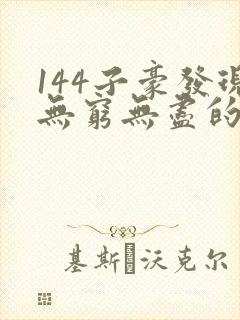 144子豪發現
無窮無盡的
基斯 沃克尔